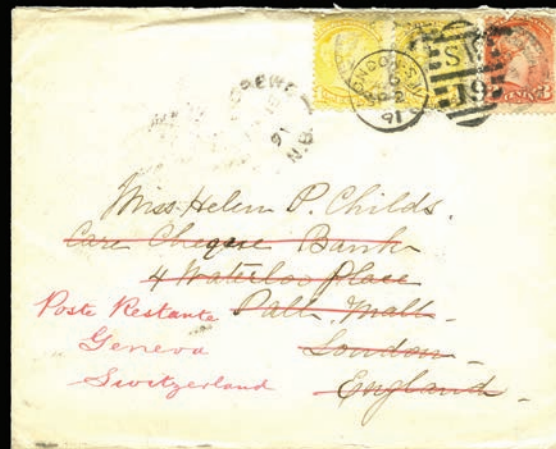 LONDON·S.W
SP 2
91
S.W
19
91
N.B.
Miss Helen P. Childs.
Care Cheque Bank
4 Waterloo Place
Poste Restante Pall Mall
Geneva London
Switzerland England